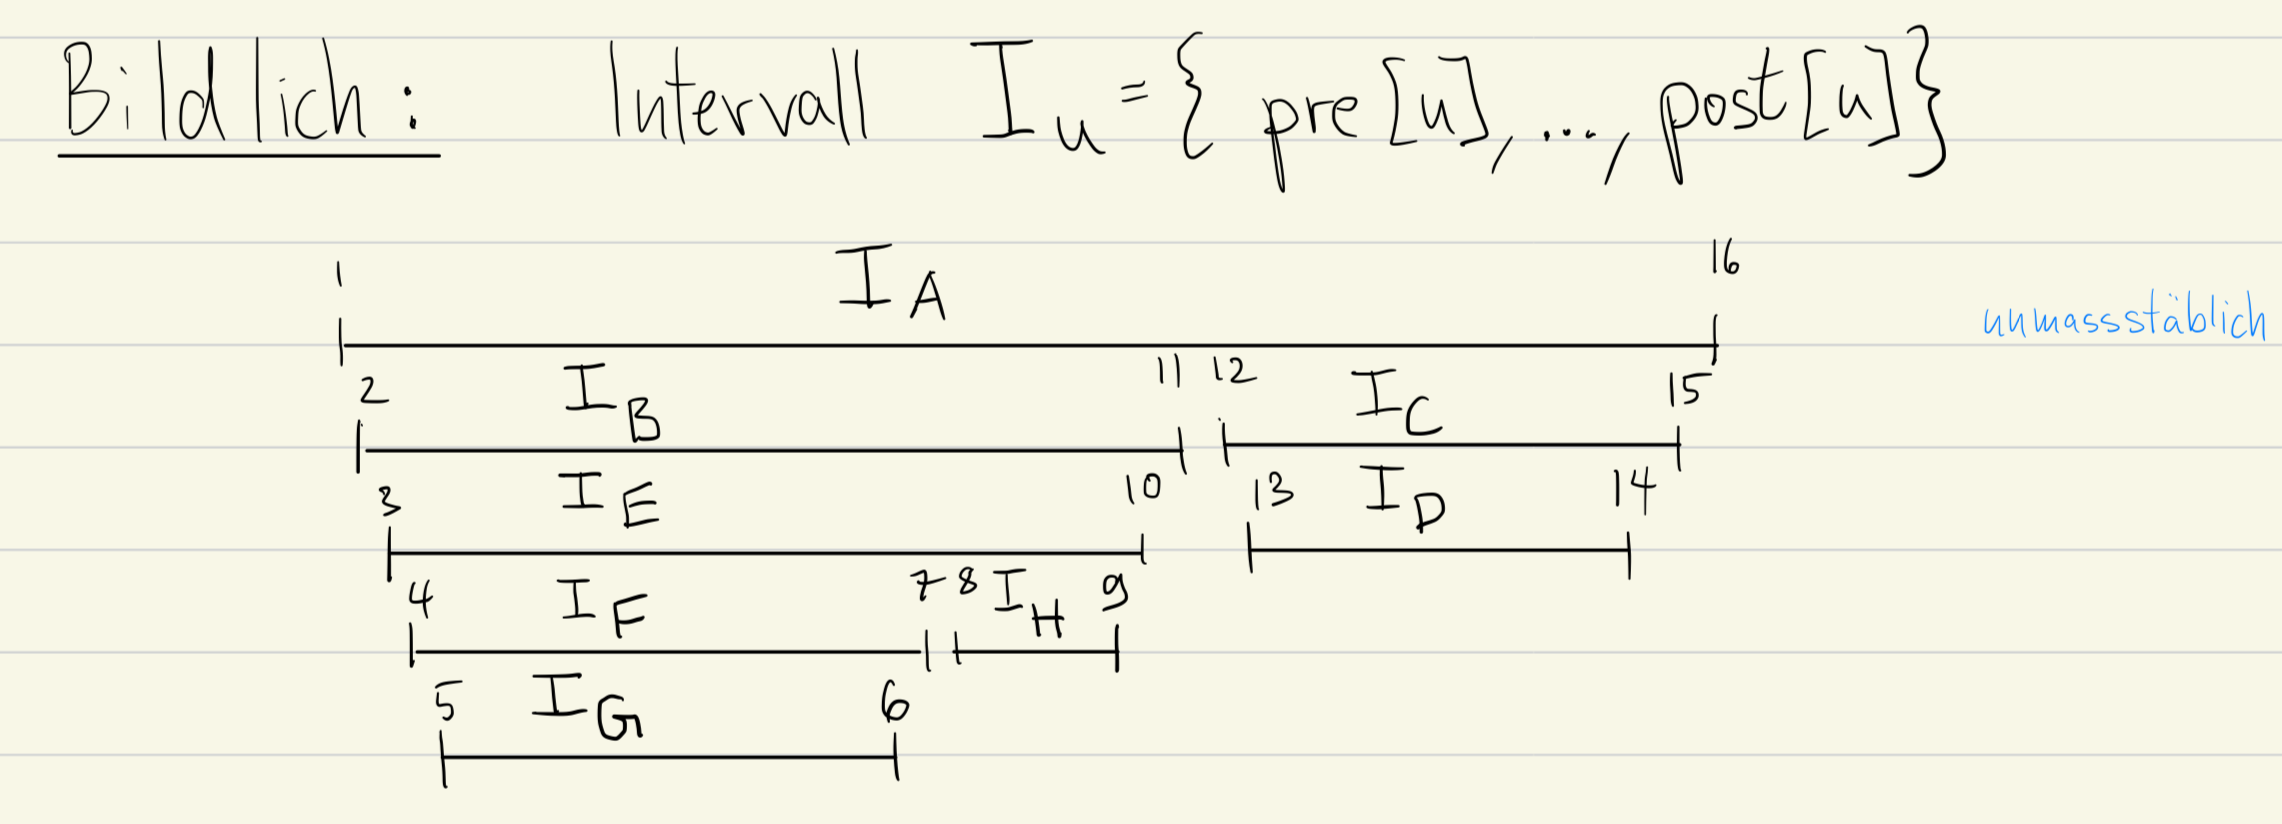 Bildlich: Intervall I_u = { pre[u], ..., post[u]}
1 I_A 16
unmassstäblich
2 I_B 11 12 I_C 15
3 I_E 10 13 I_D 14
4 I_F 7 8 I_H 9
5 I_G 6